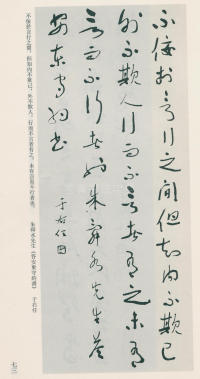 不佞於言行之間但知内不欺己
外不欺人行而不言者有之未有
言而不行者也朱舜水先生答
安東守約書
于右任
不佞於言行之間，但知内不欺己，外不欺人；行而不言者有之，未有言而不行者也。
朱舜水先生《答安東守約書》 于右任
七三